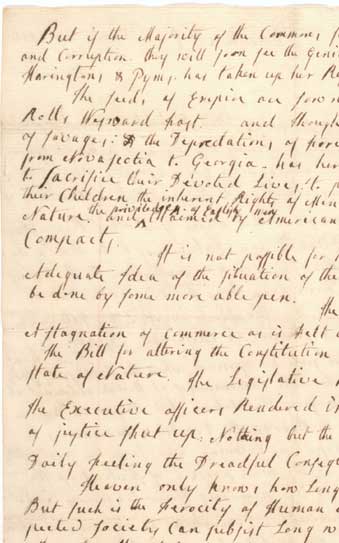 But if the Majority of the Commons
and Corruption. they will soon see the Geni
Haringtons & Pyms. has taken up her Re
The seeds of Empire are sown
Rolls Westward fast. and though
of savages: & the Depredations of
from Novascotia to Georgia. has her
to sacrifice their Devoted Lives, to p
their Children the inherent Rights of Men
the priviledges of English men
Nature. and claimed by American
Compacts,
It is not possible for
Adequate Idea of the situation of the
be done by some more able pen.
The
A stagnation of Commerce as is felt
The Bill for altering the Constitution
state of Nature. The Legislative
The Executive officers Rendered in
of justice shut up. Nothing but the
Daily feeling the Dreadful Conseq
Heaven only knows how Long
But such is the ferocity of Human
pected Society Can subsist Long